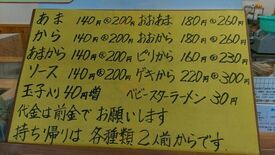 あま 140円㊅200円 おおあま 180円㊅260円
から 140円㊅200円 おおから 180円㊅260円
あまから 140円㊅200円 ピリから 160円㊅230円
ソース 140円㊅200円 ゲキから 220円㊅300円
玉子入り40円増 ベビースターラーメン 30円
代金は前金でお願いします
持ち帰りは各種類2人前からです。